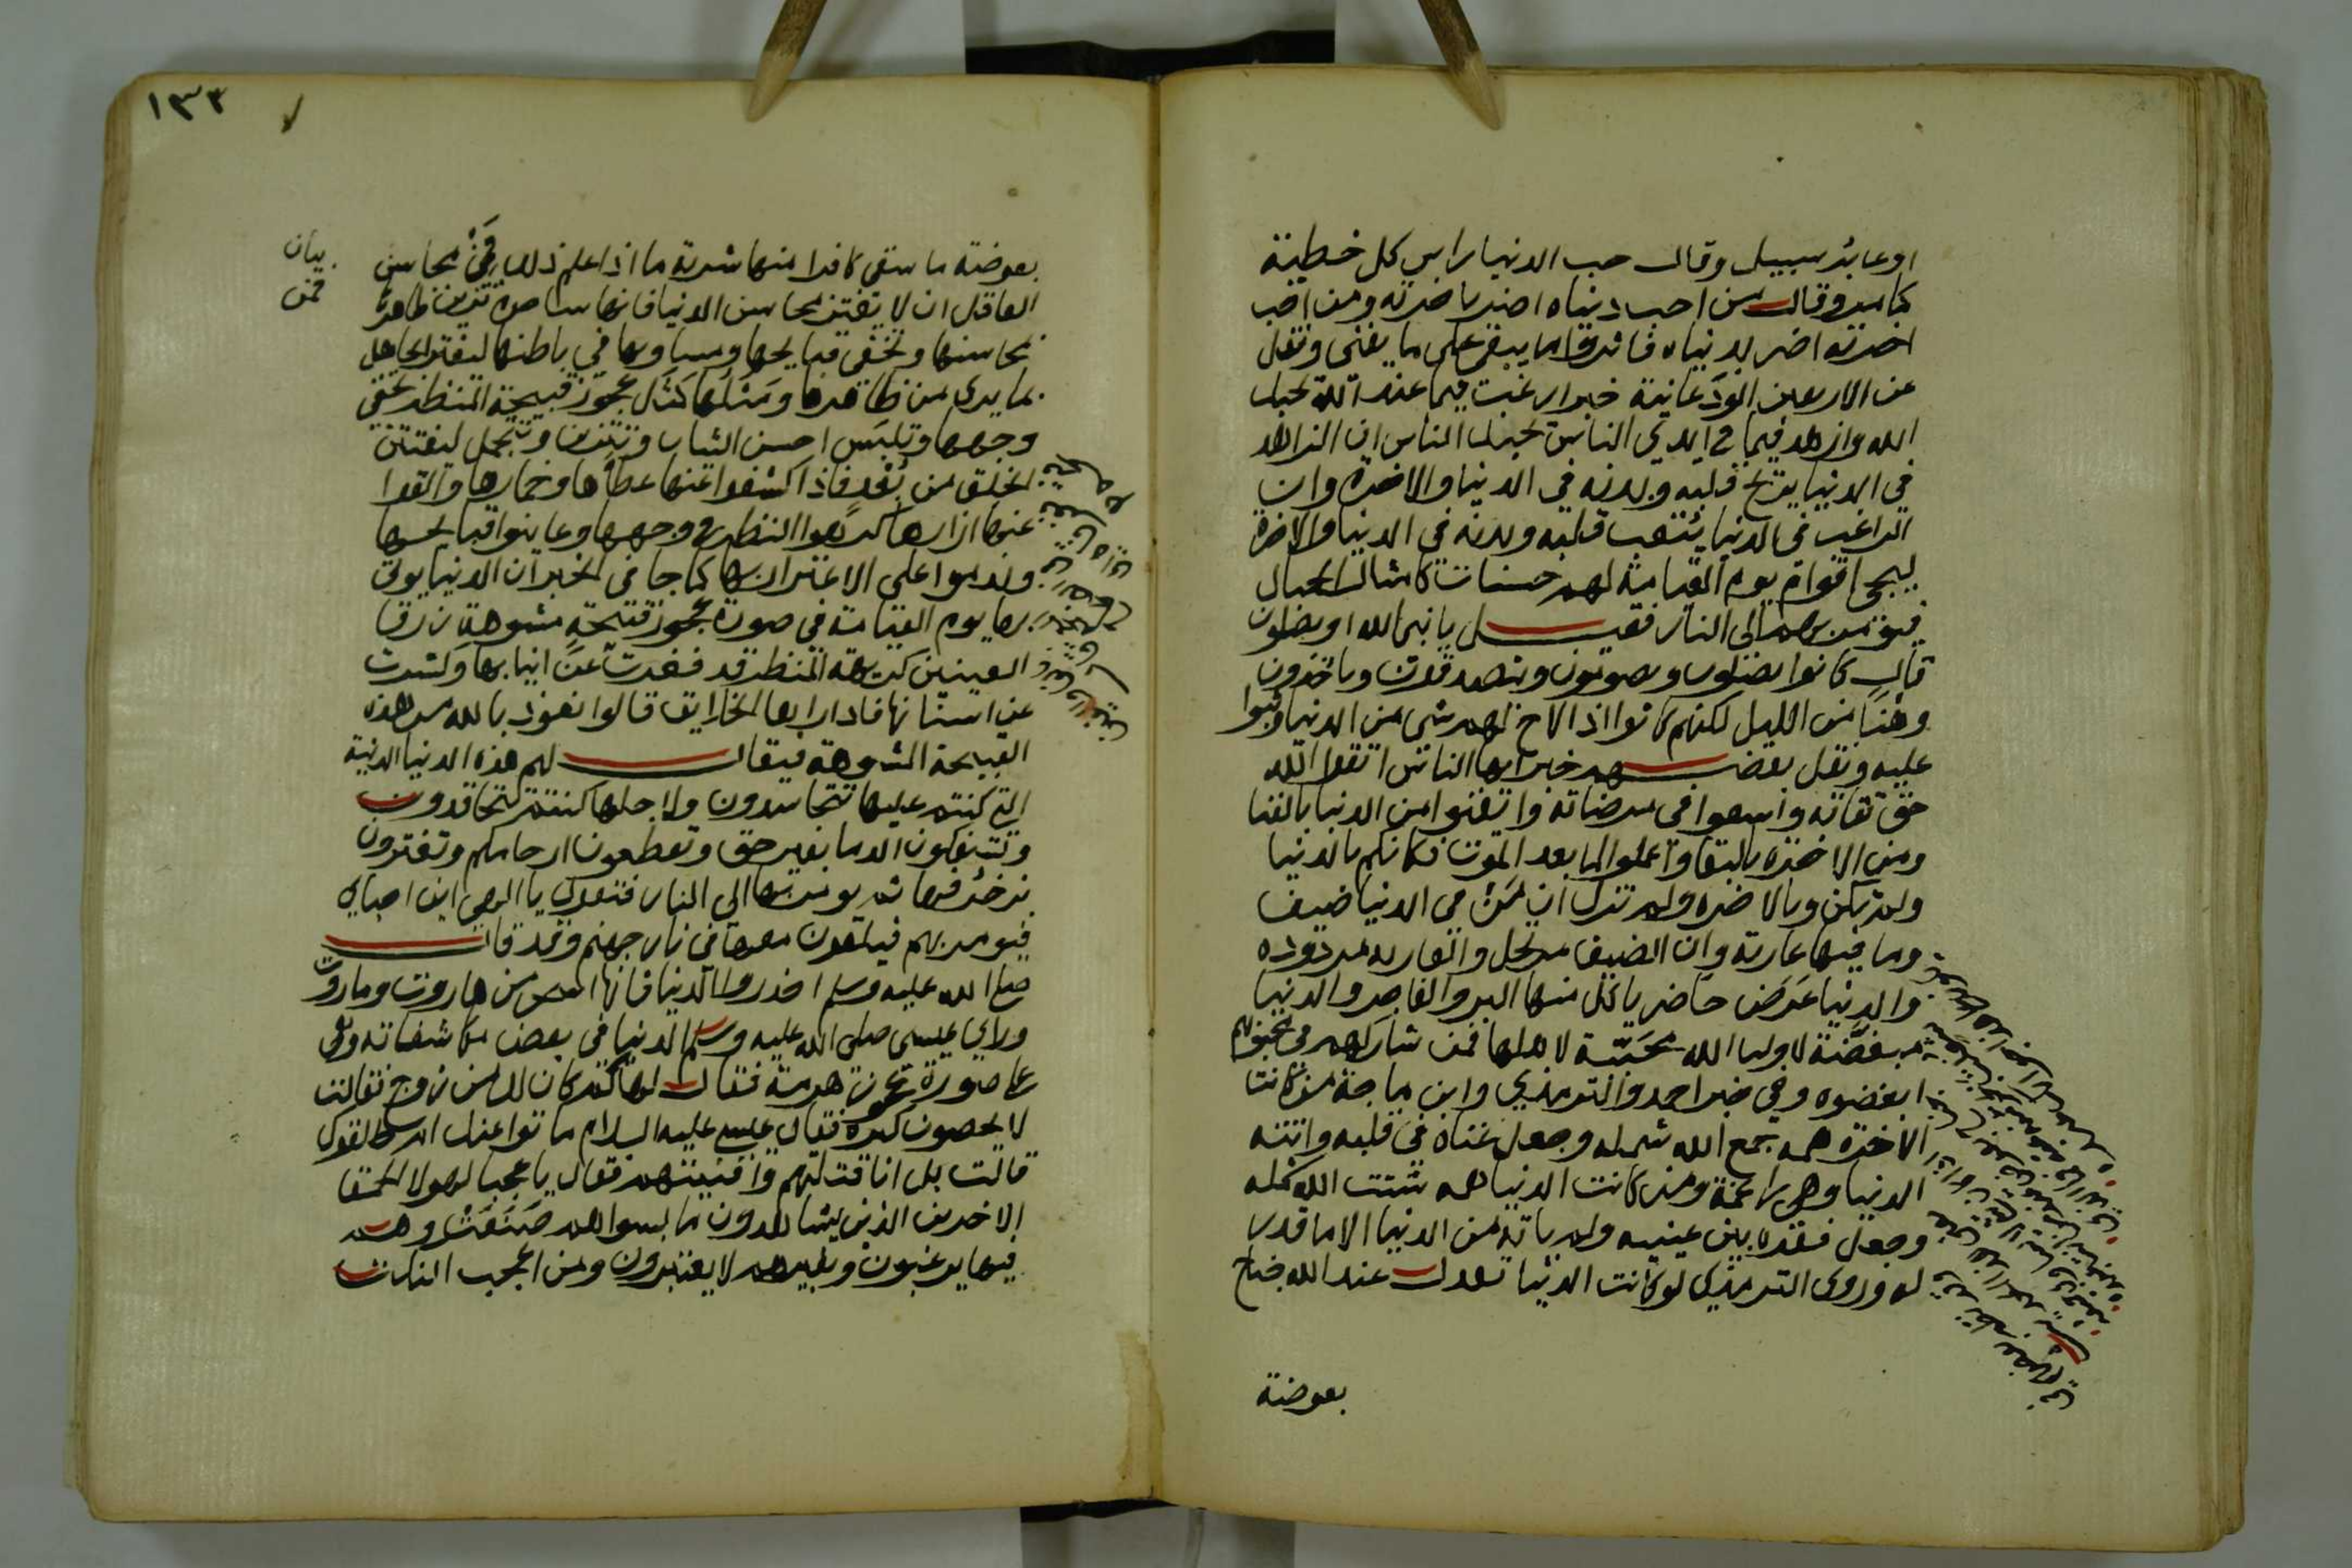 او عابر سبيل وقال حب الدنيا راس كل خطيئة
كما مر وقال من احب دنياه اضر باخرته ومن احب
اخرته اضر بدنياه فاثروا ما يبقى على ما يفنى ونقل
عن الاربعين الودعانية خبر ارغبت فيما عند الله يحبك
الله وازهد فيما في ايدي الناس يحبك الناس ان الزاهد
في الدنيا يريح قلبه وبدنه في الدنيا والاخرة وان
الراغب في الدنيا يتعب قلبه وبدنه في الدنيا والاخرة
ليجئ اقوام يوم القيامة لهم حسنات كامثال الجبال
فيؤمر بهم الى النار فقيل يا نبي الله او يصلون
قال كانوا يصلون ويصومون ويتصدقون وياخذون
وهنا من الليل لكنهم كانوا اذا لاح لهم شي من الدنيا وثبوا
عليه ونقل بعضهم خبر ايها الناس اتقوا الله
حق تقاته واسعوا في مرضاته وايقنوا من الدنيا بالفنا
ومن الاخرة بالبقا واعملوا لما بعد الموت فكانكم بالدنيا
ولم تكن وبالاخرة ولم تزل ان من في الدنيا ضيف
وما فيها عارية وان الضيف مرتحل والعارية مردودة
والدنيا عرض حاضر ياكل منها البر والفاجر والدنيا
مبغضة لاوليا الله محببة لاهلها فمن شاركهم في محبوبهم
ابغضوه وفي خبر احمد والترمذي وابن ماجة من كانت
الاخرة همه جمع الله شمله وجعل غناه في قلبه واتته
الدنيا وهي راغمة ومن كانت الدنيا همه شتت الله شمله
وجعل فقره بين عينيه ولم ياته من الدنيا الا ما قدر
له وروى الترمذي لو كانت الدنيا تعدل عند الله جناح
بعوضة
١٣٣
بعوضة ما سقى كافرا منها شربة ما اذا علم ذلك فمن محاسن
بيان
فمن
العاقل ان لا يغتر بمحاسن الدنيا فانها ساحرة تزين ظاهرها
بمحاسنها وتخفي قبايحها ومساويها في باطنها ليغتر الجاهل
بما يرى من ظاهرها ومثلها كمثل عجوز قبيحة المنظر تخفي
وجهها وتلبس احسن الثياب وتتزين وتتجمل ليفتتن
الخلق من بعد فاذا كشفوا عنها غطاها وخمارها والقوا
عنها ازارها كرهوا النظر في وجهها وعاينوا قبايحها
وندموا على الاغترار بها كما جا في الخبر ان الدنيا يوتى
بها يوم القيامة في صورة عجوز قبيحة مشوهة زرقا
العينين كريهة المنظر قد فغرت عن انيابها وكشرت
عن اسنانها فاذا راها الخلايق قالوا نعوذ بالله من هذه
القبيحة المشوهة فيقال لهم هذه الدنيا الدنية
التي كنتم عليها تتحاسدون ولاجلها كنتم تتحاقدون
وتسفكون الدما بغير حق وتقطعون ارحامكم وتغترون
بزخرفها ثم يومر بها الى النار فتقول يا الهي اين احبابي
فيومر بهم فيلقون معها في نار جهنم وقد قال
صلى الله عليه وسلم احذروا الدنيا فانها اسحر من هاروت وماروت
وراى عيسى صلى الله عليه وسلم الدنيا في بعض مكاشفاته وهي
على صورة عجوز هرمة فقال لها كم كان لك من زوج فقالت
لا يحصون كثرة فقال عيسى عليه السلام ماتوا عنك ام طلقوك
قالت بل انا قتلتهم وافنيتهم فقال يا عجبا لهولا الحمقا
الاخرين الذين يشاهدون ما بسواهم صنعت وهم
فيها يرغبون وبغيرهم لا يعتبرون ومن اعجب النكات